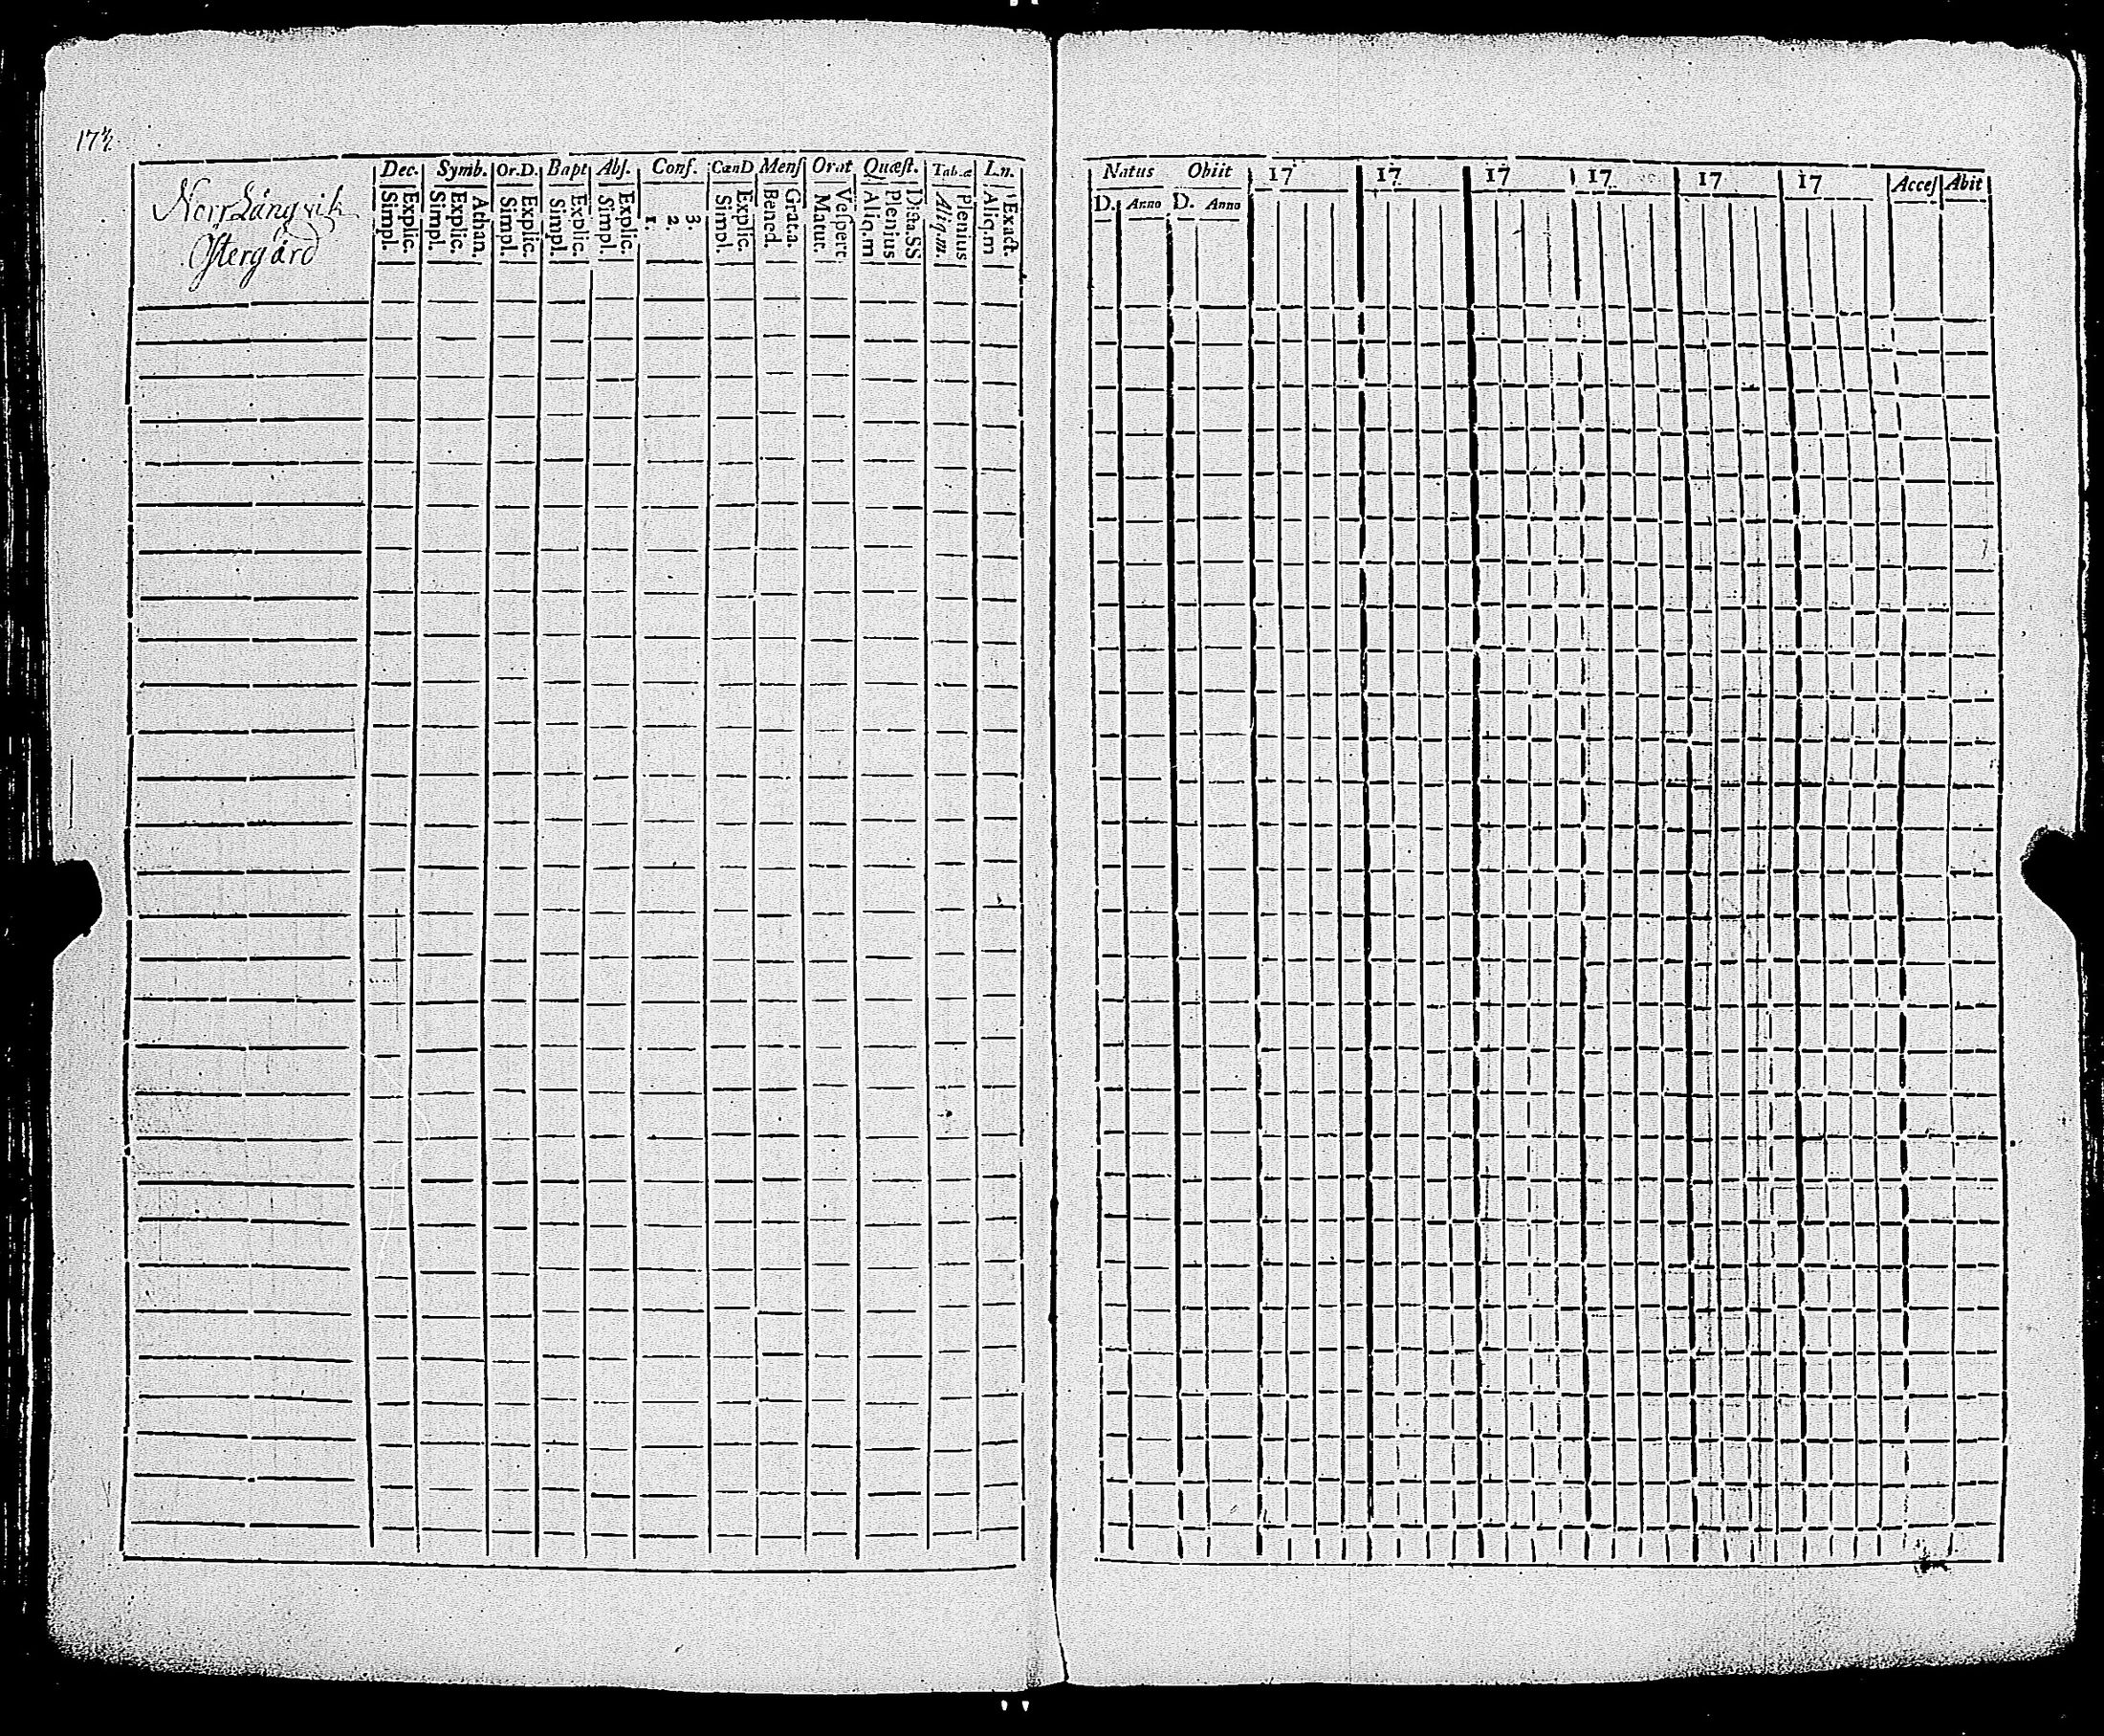 Norr Långvik
Östergård
Dec. Symb. Or.D. Bapt Abs. Conf. CœnD Mens Orat Quæst. Tab.æ L.n.
Explic. Simpl.
Athan. Explic. Simpl.
Explic. Simpl.
Explic. Simpl.
Explic. Simpl.
3. 2. 1.
Explic. Simpl.
Grat.a. Bened.
Vespert Matut.
Dicta.SS Plenius Aliq.m
Plenius Aliq.m.
Exact. Aliq.m
Natus Obiit 17 17 17 17 17 17 Acces Abit
D. Anno D. Anno